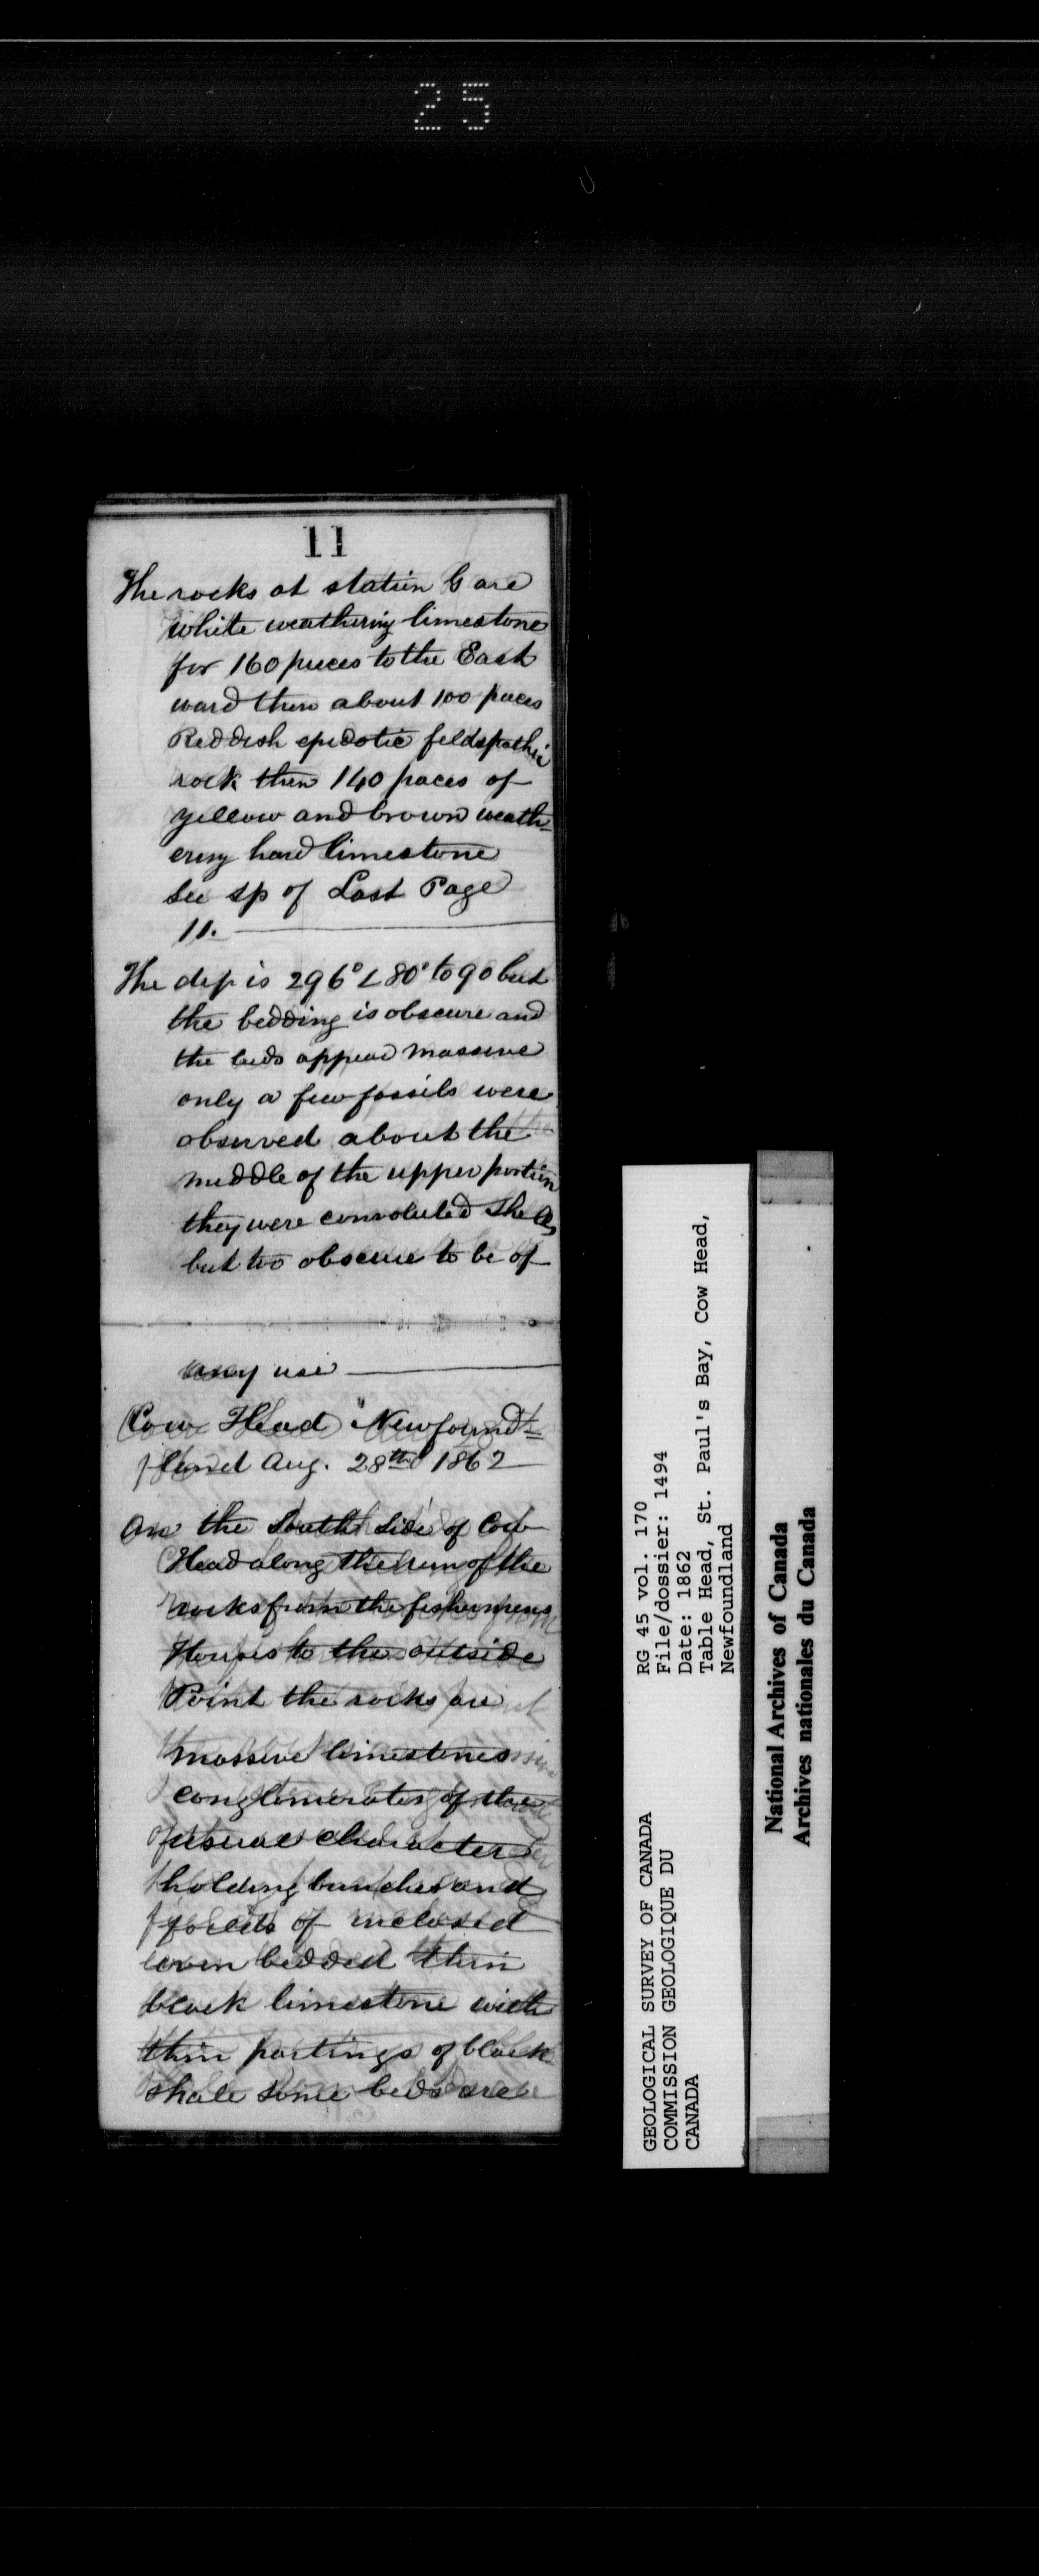 25
11
The rocks at station G are
white weathering limestone
for 160 paces to the East
ward then about 100 paces
Reddish epidotic feldspathic
rock then 140 paces of
yellow and brown weath=
ering hard limestone
See sp of Last Page
11.
The dip is 296° L 80° to 90 but
the bedding is obscure and
the beds appear massive
only a few fossils were
observed about the
middle of the upper portion
they were convoluted shells
but too obscure to be of
any use
Cow Head Newfound=
land Aug. 28th 1862
On the South side of Cow
Head along the rim of the
rocks from the fishermens
Houses to the outside
Point the rocks are
massive limestones
conglomerates of the
usual character
holding bunches and
of inclosed
even bedded thin
black limestone with
thin partings of black
shale some beds are
GEOLOGICAL SURVEY OF CANADA
COMMISSION GEOLOGIQUE DU
CANADA
RG 45 vol. 170
File/dossier: 1494
Date: 1862
Table Head, St. Paul's Bay, Cow Head,
Newfoundland
National Archives of Canada
Archives nationales du Canada